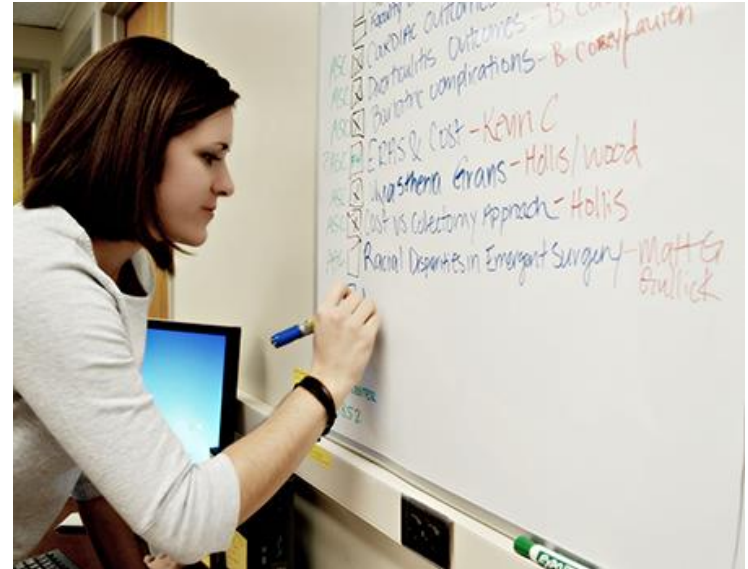 Faculty
ASC Cardiac outcomes
ASC Diverticulitis Outcomes - B. Corey/Lauren
ASC Bariatric complications - B
?ASC ERAS & Cost - Kevin C
ASC Myasthenia Gravis - Hollis/Wood
ASC Cost vs Colectomy Approach - Hollis
Racial Disparities in Emergent Surgery - Matt G
Gullick
EXPO